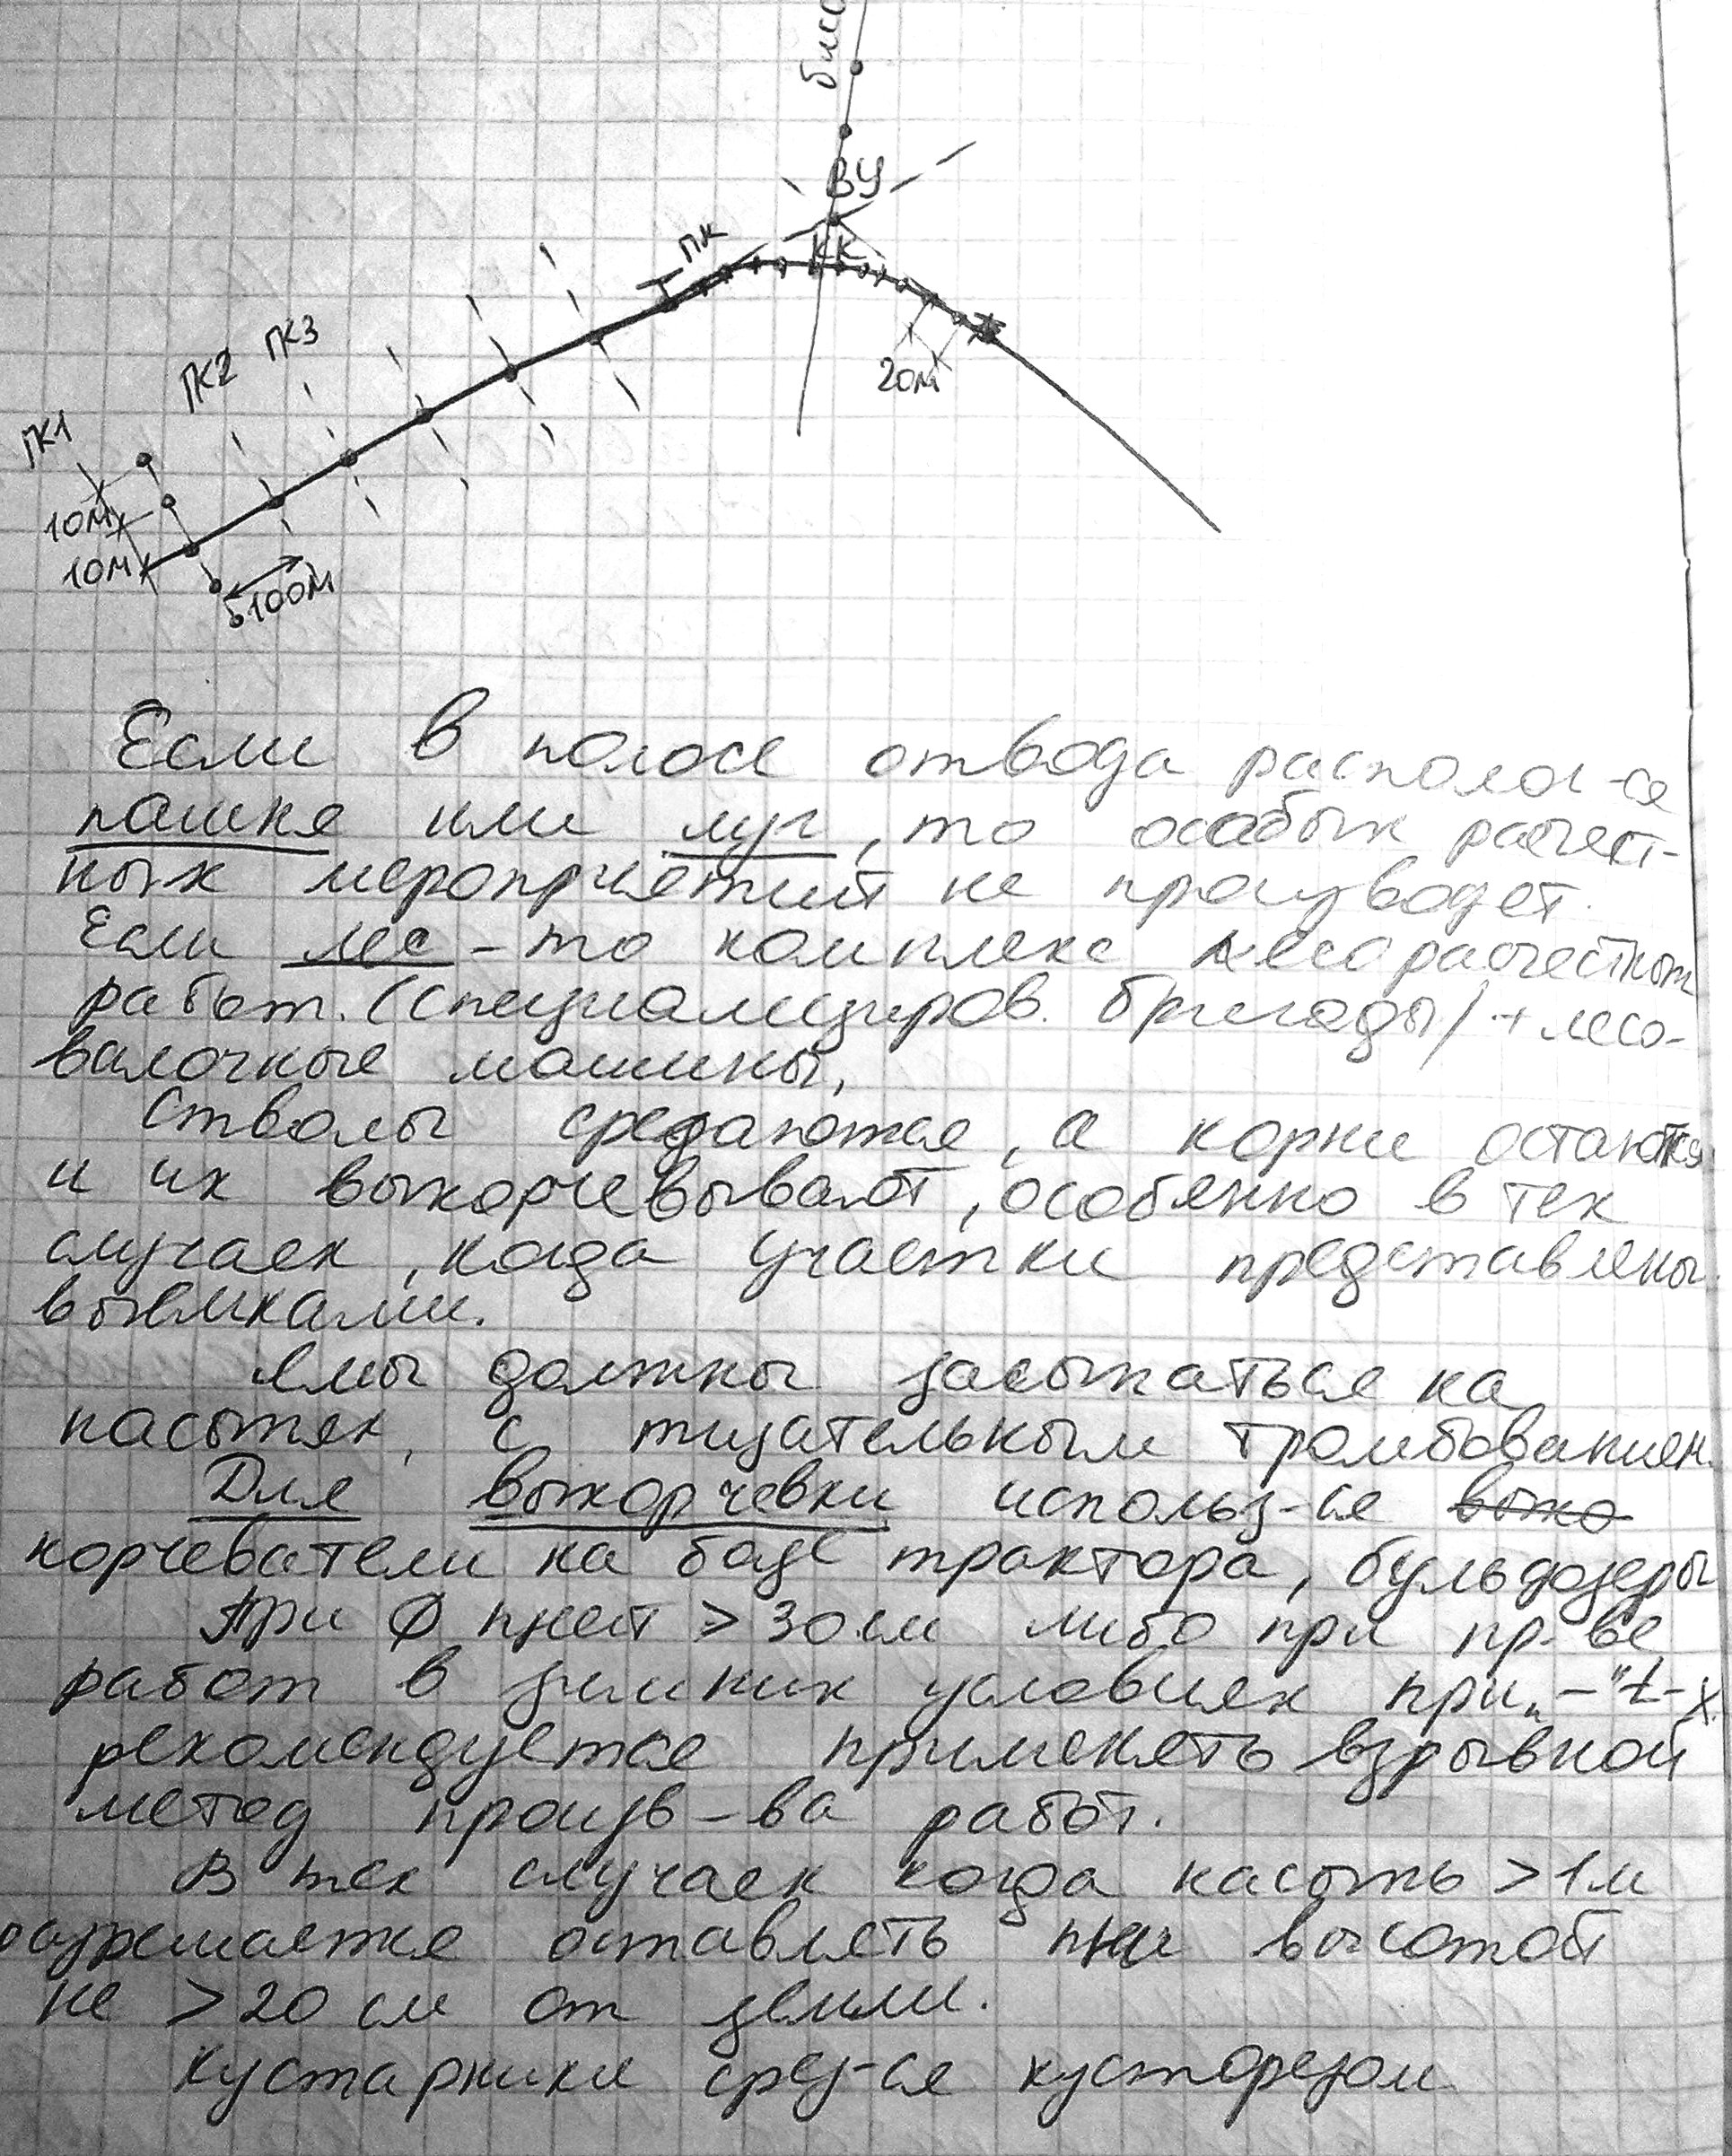 бисс
ВУ
ПК
КК
ПК3
ПК2
20м
ПК1
10м
10м
100м
Если в полосе отвода располог-ся
пашня или луг, то особых расчист-
ных мероприятий не производят.
Если лес - то комплекс лесорасчестных
работ. (специализиров. бригады) + лесо-
валочные машины,
Стволы средаются, а корни остаются
и их выкорчевывают, особенно в тех
случаях, когда участки представлены
выемками.
Ямы должны засыпаться на
насыпях, с тщательным трамбованием.
Для выкорчевки использ-ся выко
корчеватели на базе трактора, бульдозеры
При Ø пней > 30 см либо при пр-ве
работ в зимних условиях при „-" t-х
рекомендуется применять взрывной
метод произв-ва работ.
В тех случаях когда насыпь > 1 м
разрешается оставлять пни высотой
не > 20 см от земли.
Кустарники срез-ся кусторезом